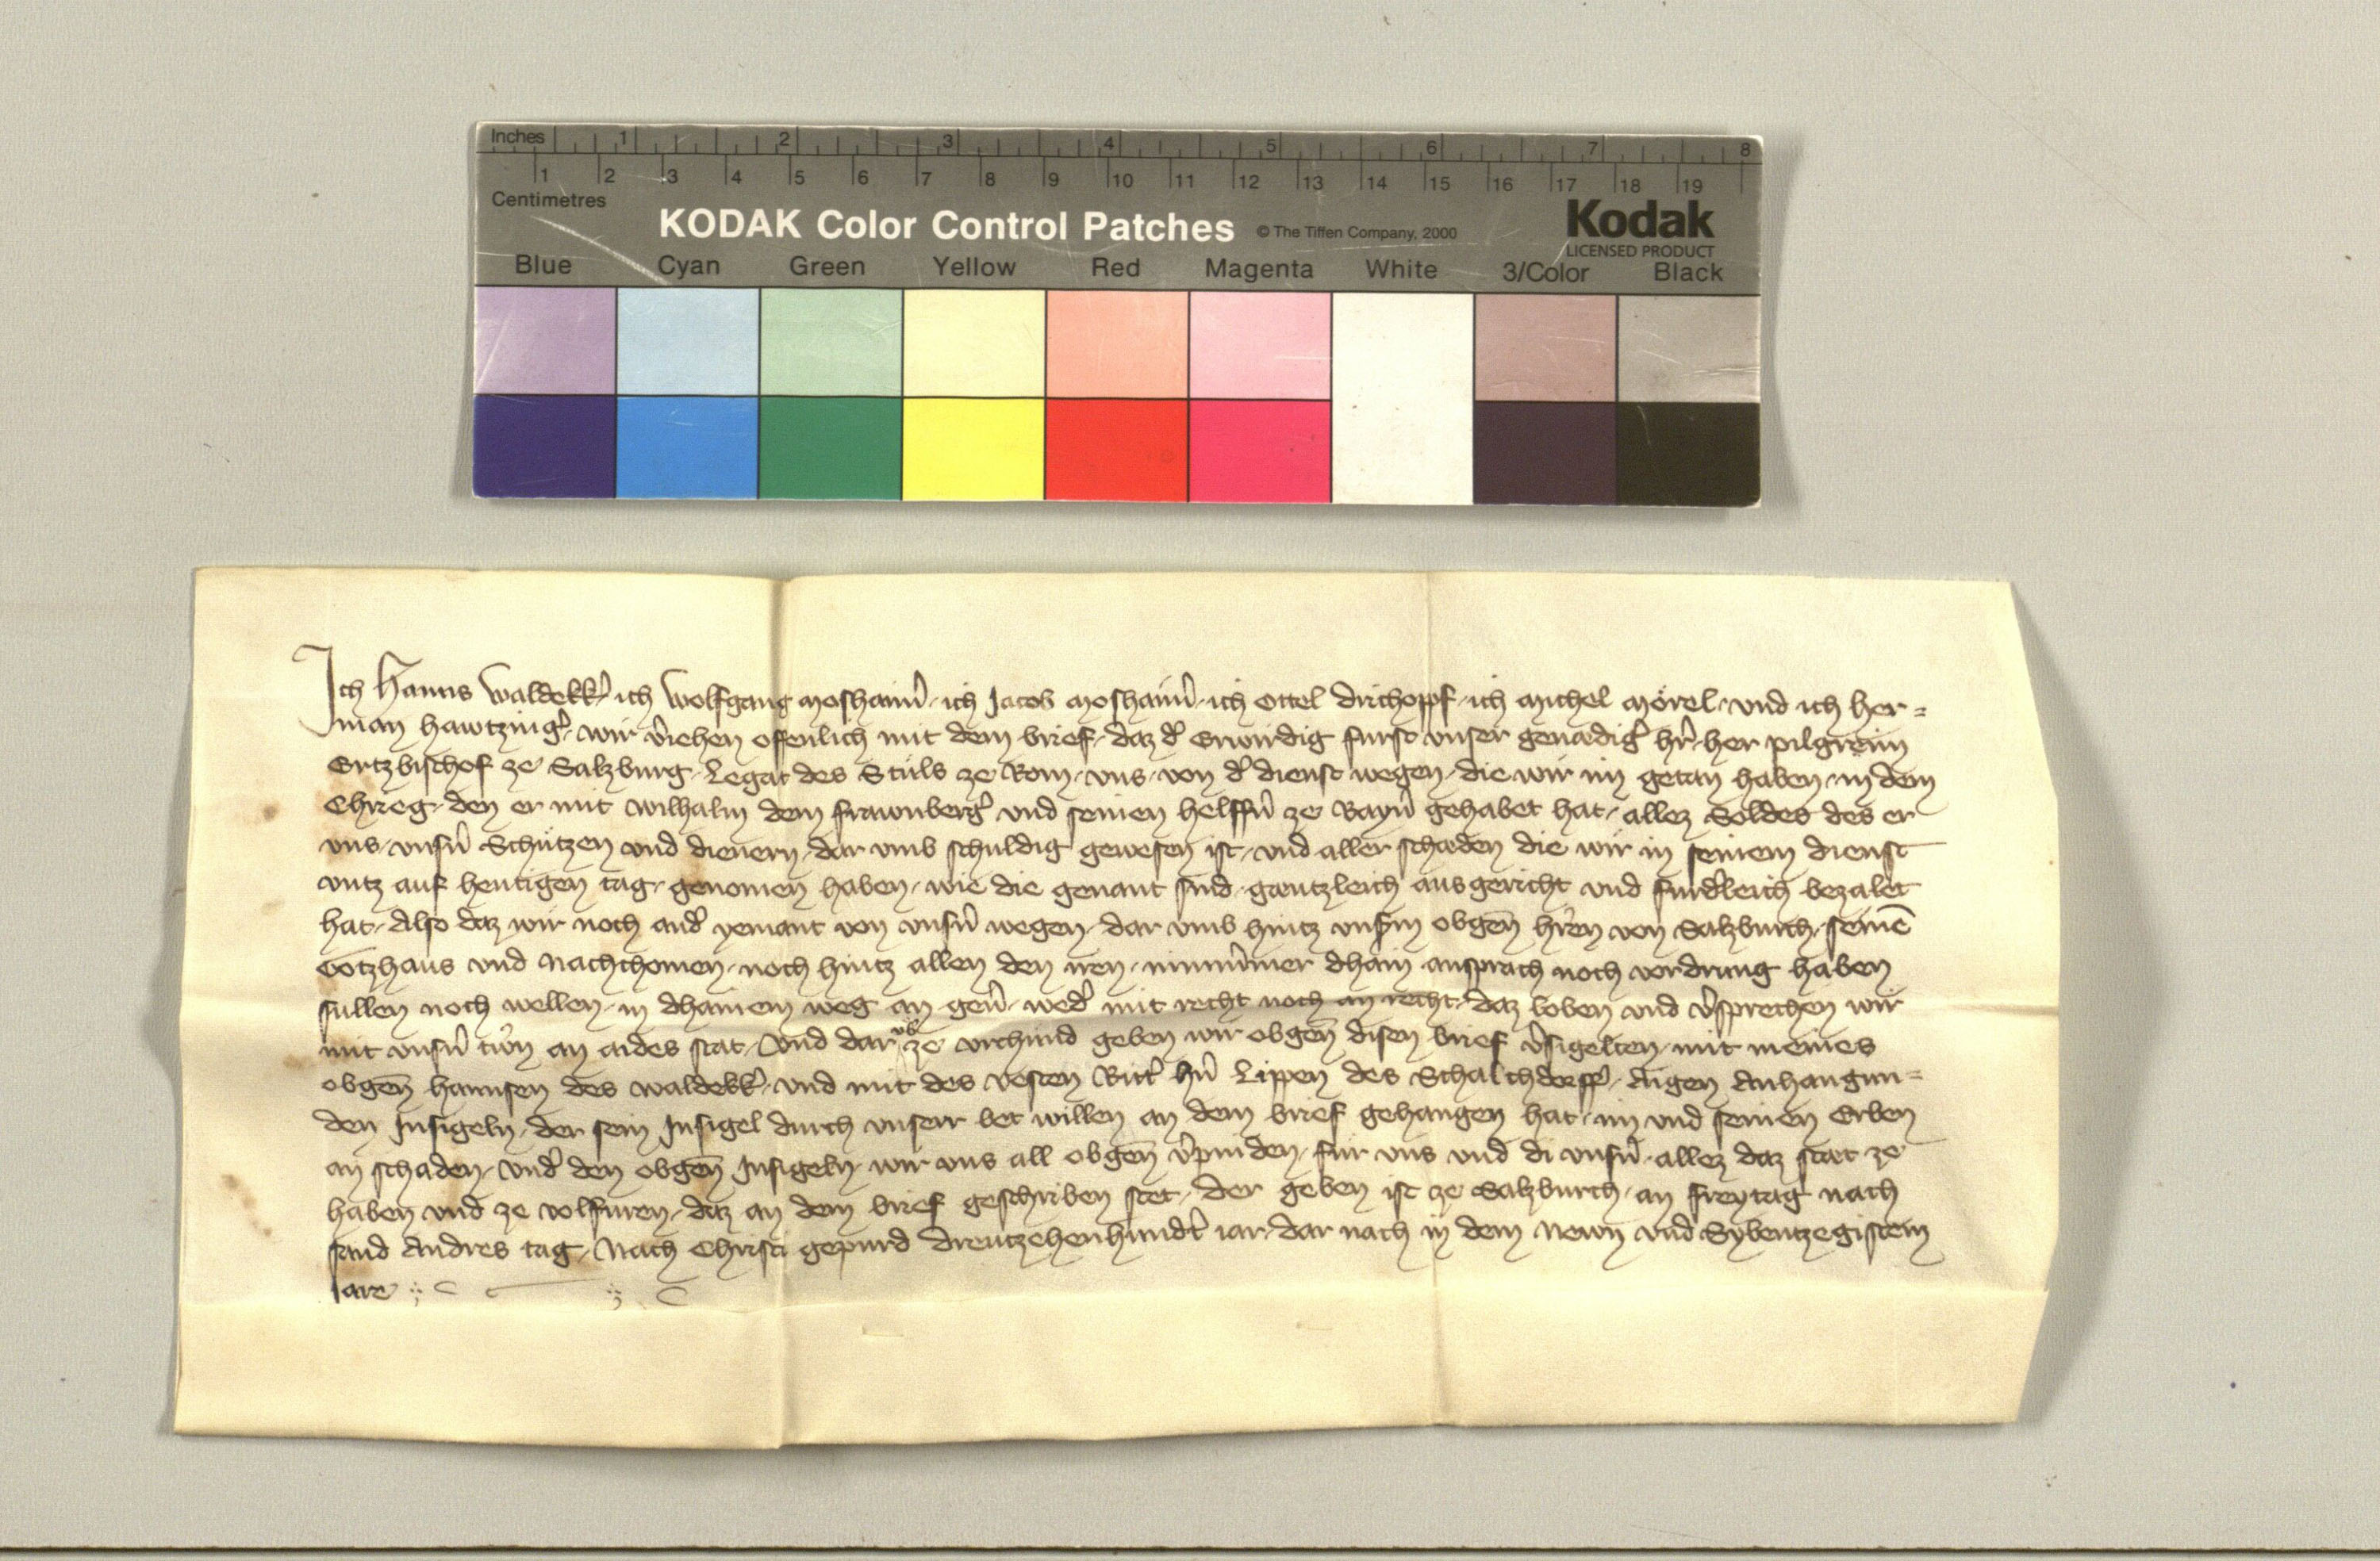 Inches 1 2 3 4 5 6 7 8
1 2 3 4 5 6 7 8 9 10 11 12 13 14 15 16 17 18 19
Centimetres
KODAK Color Control Patches © The Tiffen Company, 2000 Kodak
LICENSED PRODUCT
Blue Cyan Green Yellow Red Magenta White 3/Color Black
Ich Hanns Waldekk̉ ich Wolfgang moshaim̉ ich Jacob moshaim̉ ich Ottel dirchopf ich michel mörel und ich her=
man hawtzing̉ wir v̉iehen offenlich mit dem brief daz d̉ Erwirdig furst unser genadig̉ hr̉ her pilgreim
Ertzbischof ze Salzburg Legat des Stůls ze Rom uns von d̉ dienst wegen die wir im getan haben in dem
Chrieg den er mit Wilhalm dem frawnberg̉ und seinen helffn̉ ze Bayrn̉ gehabet hat allez Soldes des er
uns unsn̉ Schützen und dienern dar umb schuldig gewesen ist und aller schaden die wir in seinem dienst
untz auf hentigen tag genomen haben wie die genant sind gantzleich ausgericht und furd̉leich bezalet
hat Also daz wir noch and̉ yemant von unsn̉ wegen dar umb hintz unsm obgen̄ hr̉en von Salzburch seinē
Gotzhaus und Nachchomen noch hintz allen den iren nimm̉mer dhain ansprach noch vordrung haben
sullen noch wellen in dhainem weg an gen̉ wed̉ mit recht noch an recht daz loben und v̉sprechen wir
mit unsn̉ trẘn an aides stat Und dar ub̉ ze urchund geben wir obgen̄ disen brief v̉sigelten mit meines
obgen̄ hannsen des Waldekk̉ und mit des vesten Ritt̉ hn̉ Lippen des Schalchdorff̉ Aigen Anhangun=
den Insigeln der sein Insigel durch unserr bet willen an dem brief gehangen hat im und seinen Erben
an schaden Und̉ den obgen̄ Insigeln wir uns all obgen̄ v̉pinden für uns und di unsn̉ allez daz stat ze
haben und ze volfuren daz an dem brief geschriben stet Der geben ist ze Salzburch an freytag nach
sand Andres tag Nach Christi gepurd Dreutzehenhundt̉ iar dar nach in dem Newn und Sybentzegistem
Iare